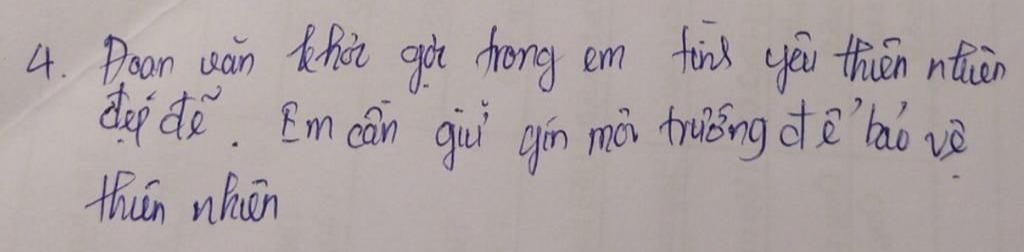 4. Đoạn văn khơi gợi trong em tình yêu thiên nhiên
đẹp đẽ. Em cần giữ gìn môi trường để bảo vệ
thiên nhiên